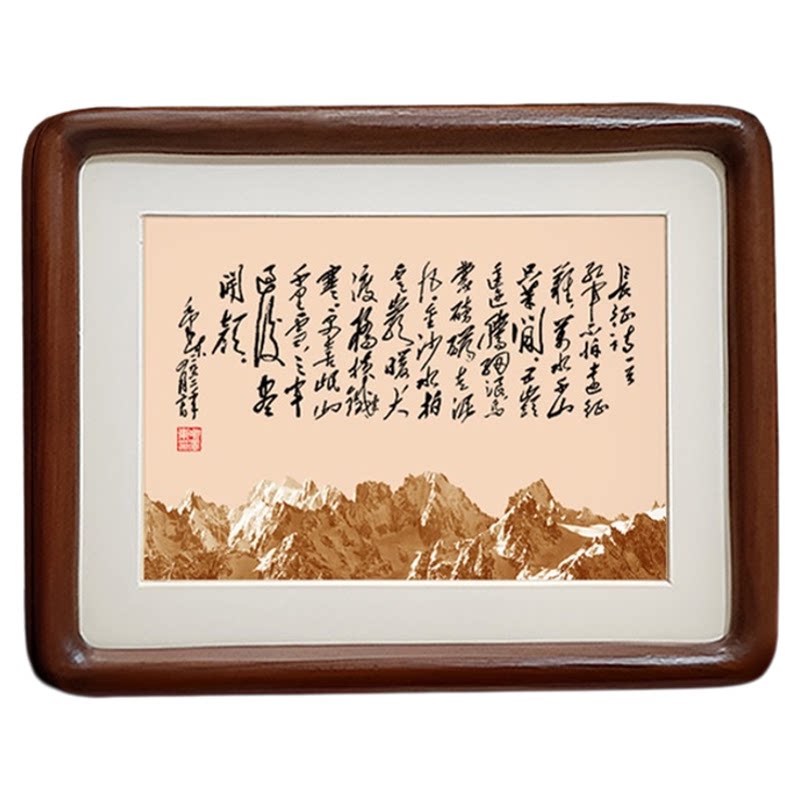 長征詩一首
紅軍不怕遠征
難萬水千山
只等閒五嶺
逶迤騰細浪烏
蒙磅礴走泥
丸金沙水拍
雲崖暖大
渡橋橫鐵索
寒更喜岷山
千里雪三軍
過後盡
開顏
毛澤東
一九六二年
四月廿日